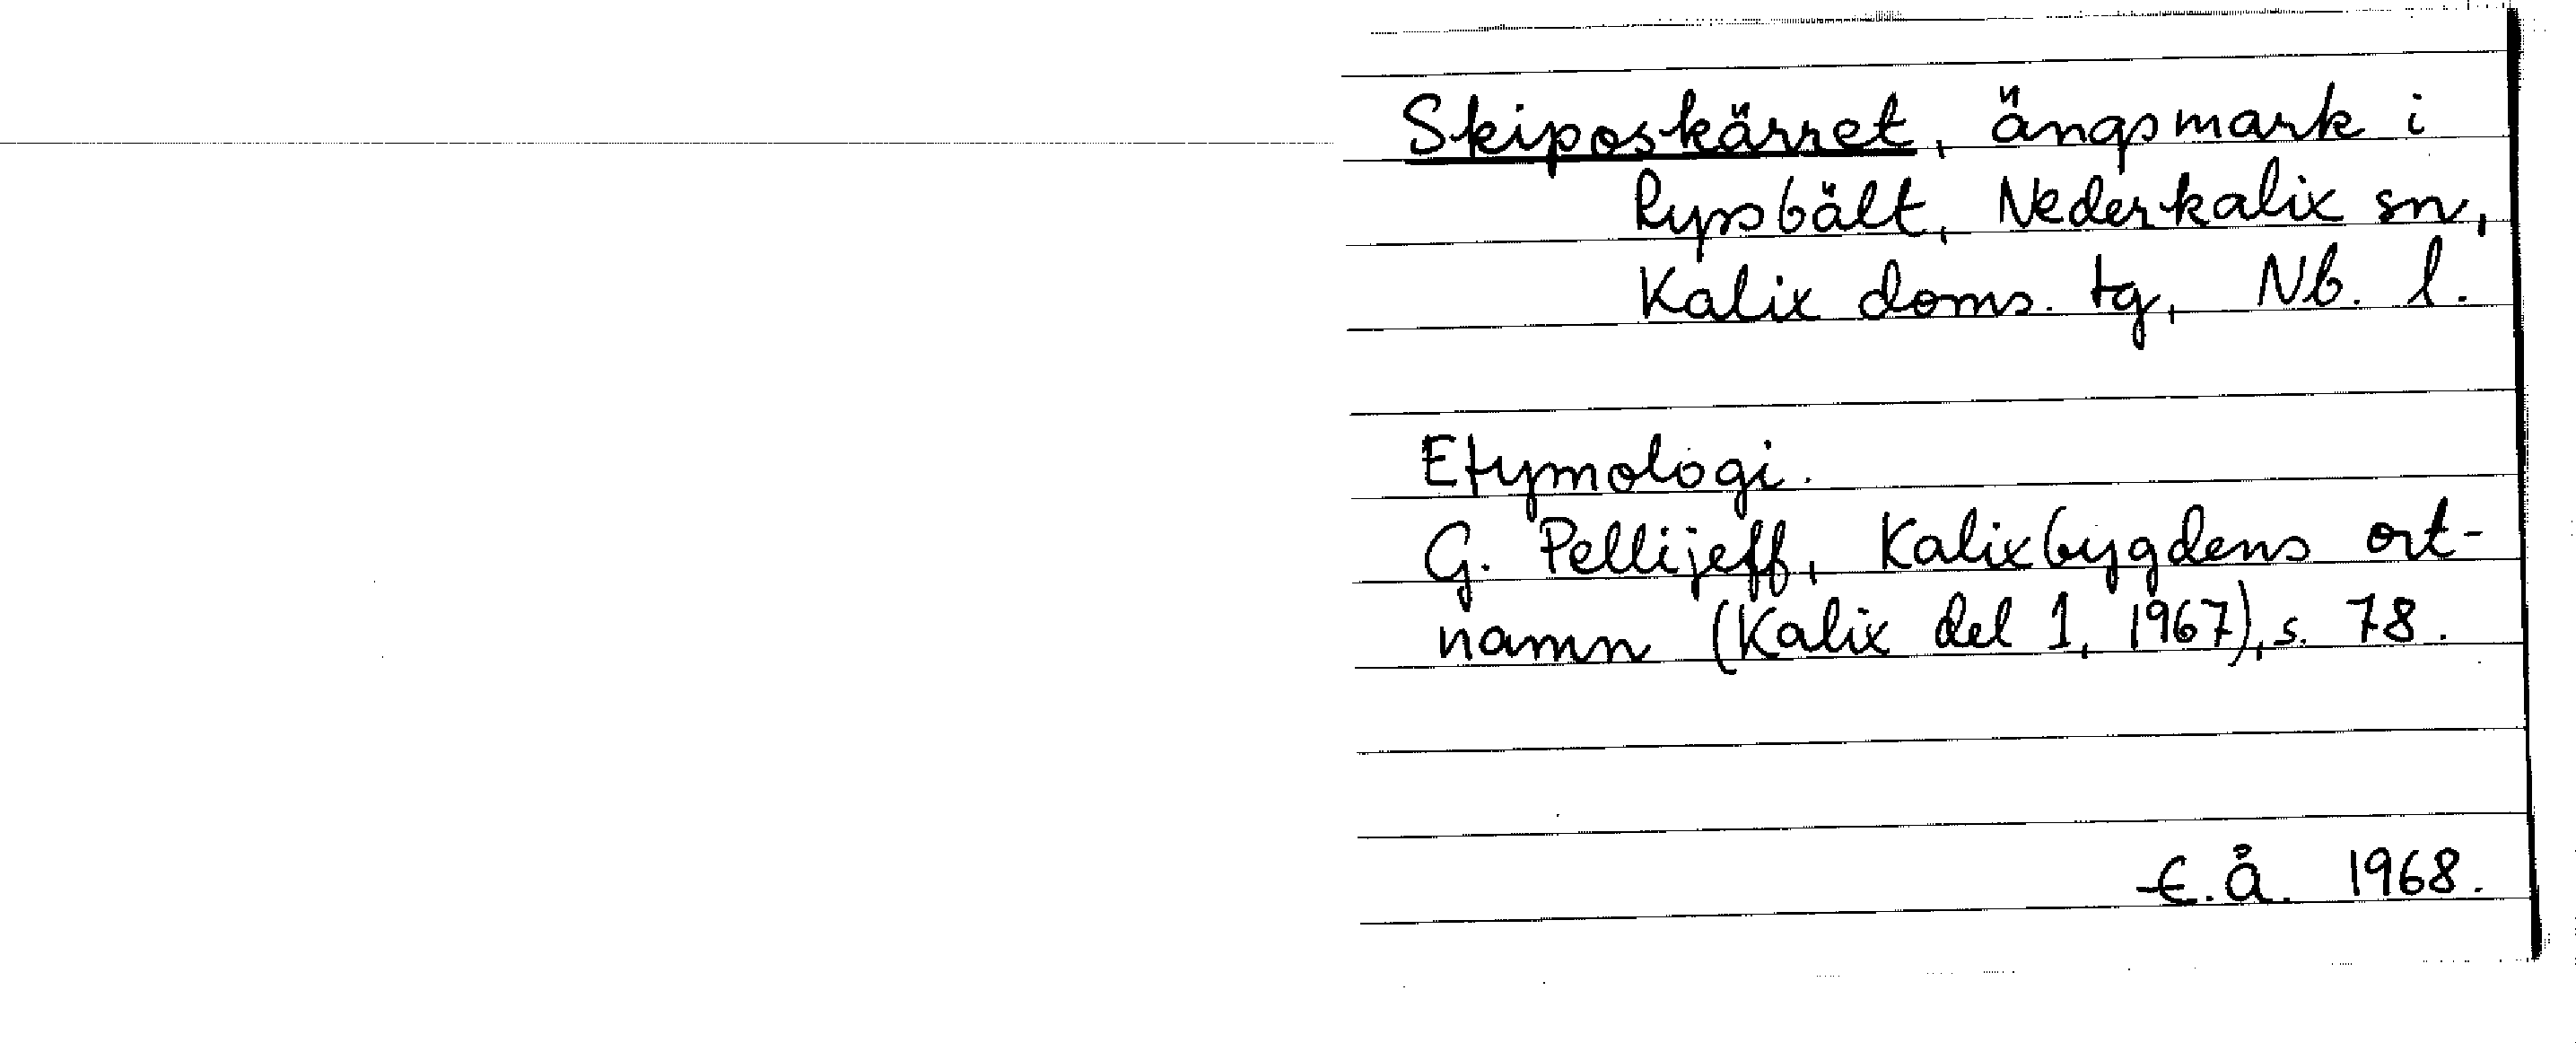 Skiposkärret, ängsmark i
Ryssbält, Nederkalix sn,
Kalix doms. tg, Nb. l.
Etymologi.
G. Pellijeff, Kalixbygdens ort-
namn (Kalix del 1, 1967), s. 78.
E. Å. 1968.